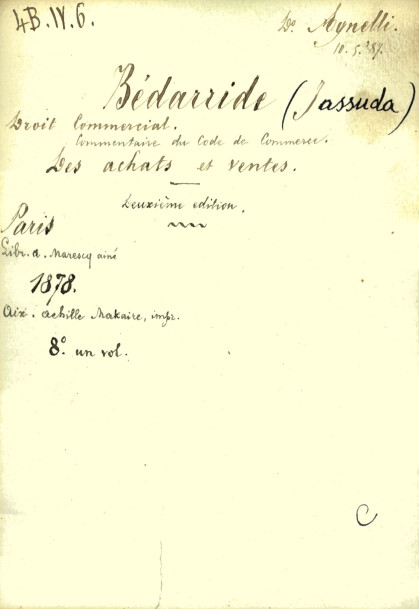 4B.IV.6.
Do Aynelli.
10.5.87.
Bédarride (Jassuda)
Droit Commercial.
Commentaire du Code de Commerce.
Des achats et ventes.
Deuxième edition.
Paris
Libr. A. Marescq ainé
1878.
Aix. Achille Makaire, impr.
8º. un vol.
C